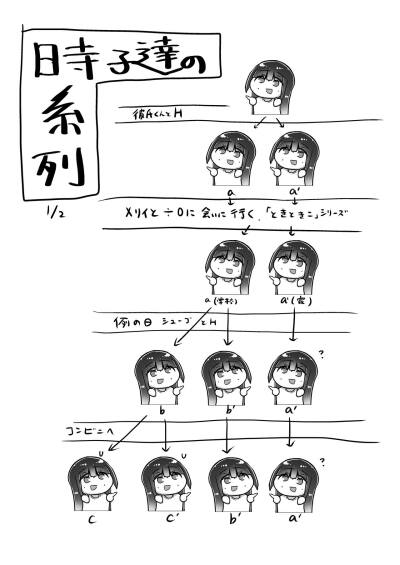 時子達の
系列
1/2
彼氏くんとH
a a'
メリイと÷0に会いに行く、「ときときこ」シリーズ
a a'
例の日 シューゴとH
b b' a' ?
コンビニへ
c c' b' a' ?